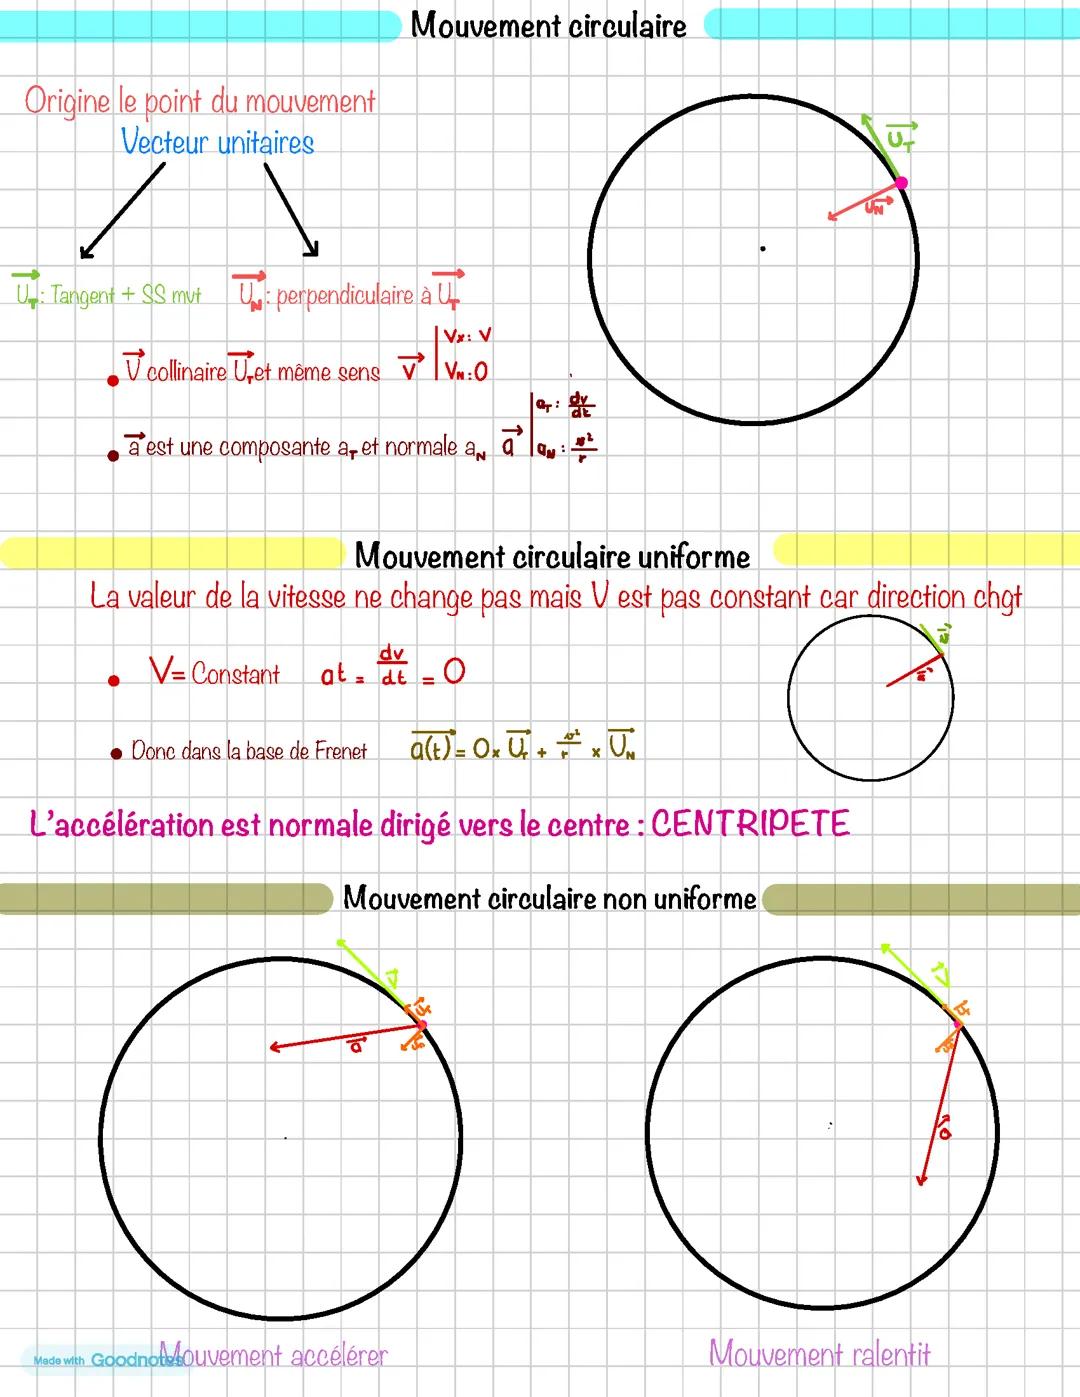 Mouvement circulaire
Origine le point du mouvement
Vecteur unitaires
U_T
U_N
U_T : Tangent + SS mvt
U_N : perpendiculaire à U_T
V collinaire U_T et même sens V | Vx : V
V_N : 0
a est une composante a_T et normale a_N a | a_T : dv/dt
a_N : v²/r
Mouvement circulaire uniforme
La valeur de la vitesse ne change pas mais V est pas constant car direction chgt
V= Constant at = dv/dt = 0
Donc dans la base de Frenet a(t) = 0 x U_T + v²/r x U_N
L'accélération est normale dirigé vers le centre : CENTRIPETE
Mouvement circulaire non uniforme
V
a
V
a
Mouvement accélérer
Mouvement ralentit
Made with Goodnotes